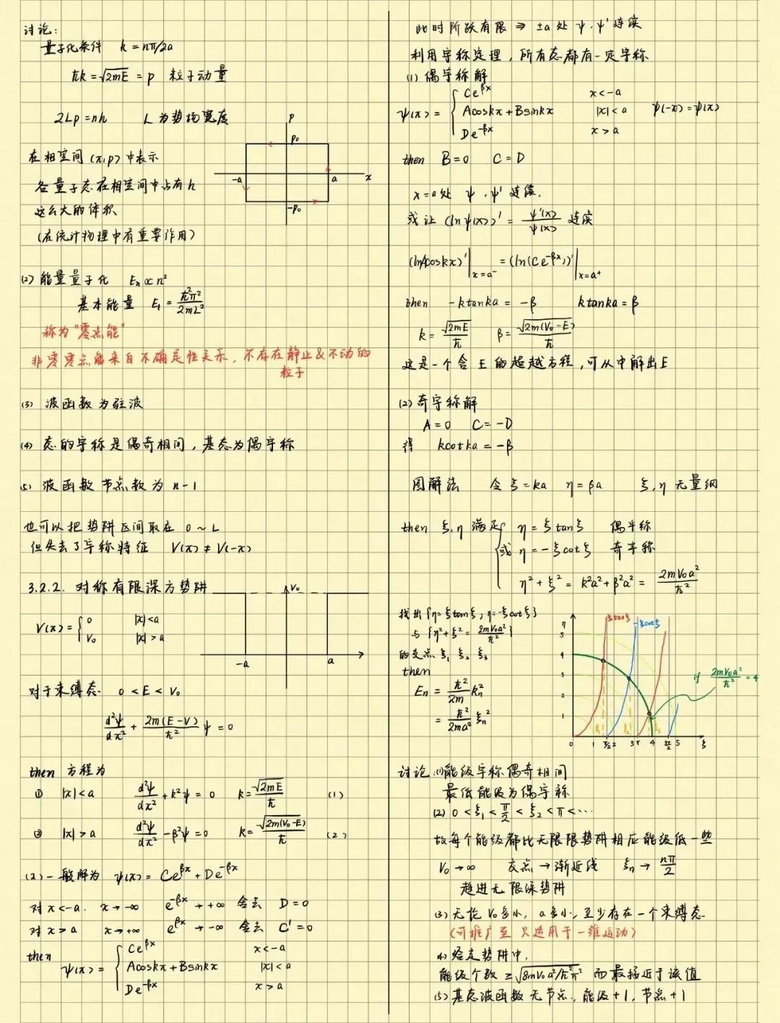 讨论:
量子化条件 k = nπ/2a
ħk = √2mE = p 粒子动量
2Lp = nh L 为势均宽度
p
p₀
在相空间 (x,p) 中表示
-a a x
各量子态在相空间中占有 h
这么大的体积
-p₀
(在统计物理中有重要作用)
(2) 能量量子化 Eₙ ∝ n²
基本能量 E₁ = ħ²π²/2mL²
称为"零点能"
非零零点能来自不确定性关系, 不存在静止&不动的
粒子
(3) 波函数为驻波
(4) 态的宇称是偶奇相间, 基态为偶宇称
(5) 波函数节点数为 n-1
也可以把势阱区间取在 0 ~ L
但失去了宇称特征 V(x) ≠ V(-x)
3.2.2. 对称有限深方势阱
V₀
V(x) = { 0 |x|<a
V₀ |x|>a
-a a
对于束缚态 0 < E < V₀
d²ψ/dx² + 2m(E-V)/ħ² ψ = 0
then 方程为
① |x|<a d²ψ/dx² + k²ψ = 0 k = √2mE/ħ (1)
② |x|>a d²ψ/dx² - β²ψ = 0 k = √2m(V₀-E)/ħ (2)
(2) 一般解为 ψ(x) = Ce^βx + De^-βx
对 x<-a. x→-∞ e^-βx → +∞ 舍去 D=0
对 x>a x→+∞ e^βx → -∞ 舍去 C'=0
then
ψ(x) = { Ce^βx x<-a
Acoskx + Bsinkx |x|<a
De^-βx x>a
此时阶跃有限 ⇒ ±a 处 ψ, ψ' 连续
利用宇称定理, 所有态都有一定宇称
(1) 偶宇称解
ψ(x) = { Ce^βx x<-a
Acoskx + Bsinkx |x|<a ψ(-x)=ψ(x)
De^-βx x>a
then B=0 C=D
x=a处 ψ, ψ' 连续.
或让 (lnψ(x))' = ψ'(x)/ψ(x) 连续
(lnAcoskx)'|x=a⁻ = (ln(Ce^-βx))'|x=a⁺
then -ktanka = -β ktanka = β
k = √2mE/ħ β = √2m(V₀-E)/ħ
这是一个含 E 的超越方程, 可从中解出E
(2) 奇宇称解
A=0 C=-D
得 kcotka = -β
图解法 令 ξ=ka η=βa ξ,η 无量纲
then ξ,η 满足 { η = ξtanξ 偶宇称
或 η = -ξcotξ 奇宇称
η²+ξ² = k²a²+β²a² = 2mV₀a²/ħ²
找出 {η=ξtanξ, η=-ξcotξ}
与 {η²+ξ² = 2mV₀a²/ħ²}
的交点 ξ₁ ξ₂ ξ₃
then
Eₙ = ħ²/2m kₙ²
= ħ²/2ma² ξₙ²
η
5
4
3
2
1
ξtanξ -ξcotξ
if 2mV₀a²/ħ² = 4
0 1 π/2 2 3 π 4 5 ξ
讨论: (1)能级宇称偶奇相间
最低能级为偶宇称
(2) 0<ξ₁<π/2<ξ₂<π<⋯
故每个能级都比无限限势阱相应能级低一些
V₀→∞ 交点→渐近线 ξₙ → nπ/2
趋进无限深势阱
(3) 无论 V₀多小, a多小, 至少存在一个束缚态
(可推广至 只适用于一维运动)
(4) 给定势阱中,
能级个数 ≥ √8mV₀a²/ħ²π² 而最接近于该值
(5) 基态波函数无节点, 能级+1, 节点+1